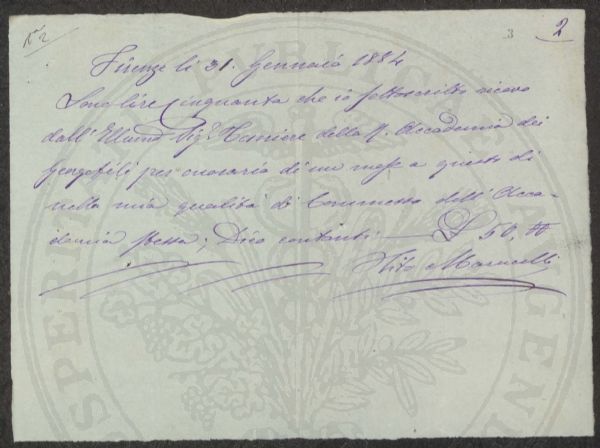 N° 2
3
2
Firenze li 31. Gennaio 1884
Sono lire Cinquanta che io sottoscritto ricevo
dall' Illumo Sigr Tesoriere della R. Accademia dei
Georgofili per onorario di un mese a questo dì
nella mia qualità di Commesso dell' Acca-
demia stessa; Dico contanti — L 50,00
Vito Marucelli